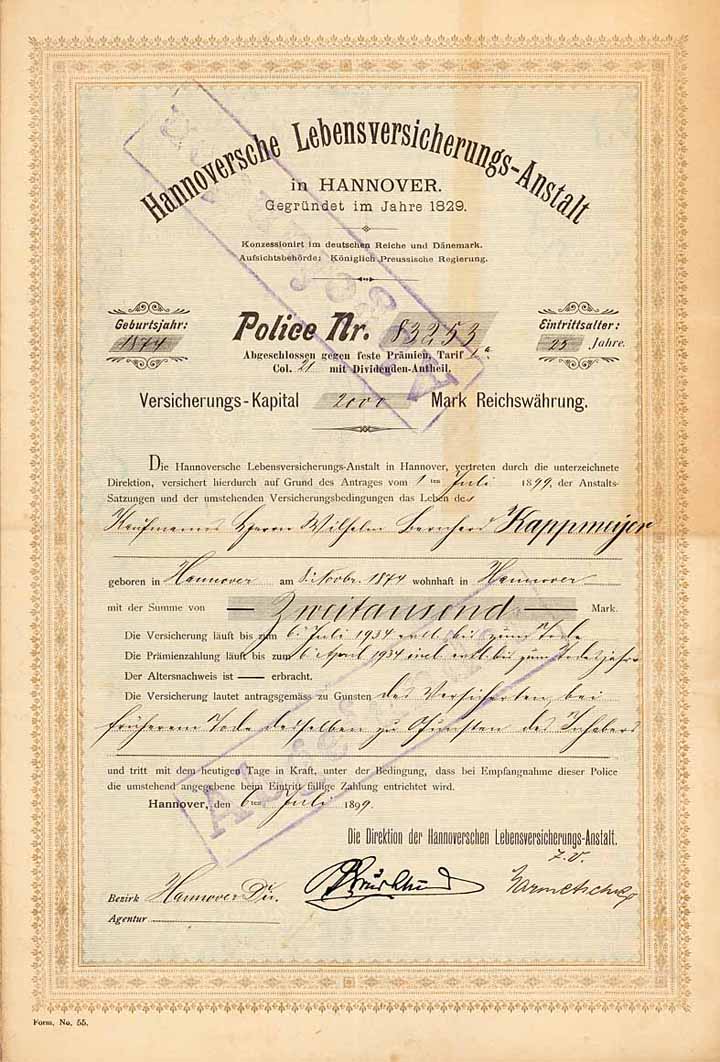 Hannoversche Lebensversicherungs-Anstalt
in HANNOVER.
Gegründet im Jahre 1829.
Konzessionirt im deutschen Reiche und Dänemark.
Aufsichtsbehörde: Königlich Preussische Regierung.
Geburtsjahr:
1874
Police Nr. 83253
Eintrittsalter:
25 Jahre.
Abgeschlossen gegen feste Prämien, Tarif
Col. 21 mit Dividenden-Antheil.
Versicherungs-Kapital 2000 Mark Reichswährung.
Die Hannoversche Lebensversicherungs-Anstalt in Hannover, vertreten durch die unterzeichnete
Direktion, versichert hierdurch auf Grund des Antrages vom 1ten Juli 1899, der Anstalts-
Satzungen und der umstehenden Versicherungsbedingungen das Leben des
Kaufmanns Herrn Wilhelm Bernhard Kappmeijer
geboren in Hannover am 8. Novbr. 1874 wohnhaft in Hannover
mit der Summe von — Zweitausend — Mark.
Die Versicherung läuft bis zum 6. Juli 1934 evtl. bis zum Tode
Die Prämienzahlung läuft bis zum 6. April 1934 incl. evtl. bis zum Todesjahr
Der Altersnachweis ist — erbracht.
Die Versicherung lautet antragsgemäss zu Gunsten des Versicherten, bei
früherem Tode desselben zu Gunsten des Inhabers
und tritt mit dem heutigen Tage in Kraft, unter der Bedingung, dass bei Empfangnahme dieser Police
die umstehend angegebene beim Eintritt fällige Zahlung entrichtet wird.
Hannover, den 6ten Juli 1899
Die Direktion der Hannoverschen Lebensversicherungs-Anstalt.
Bezirk Hannover Dir.
Agentur
Form. No. 55.